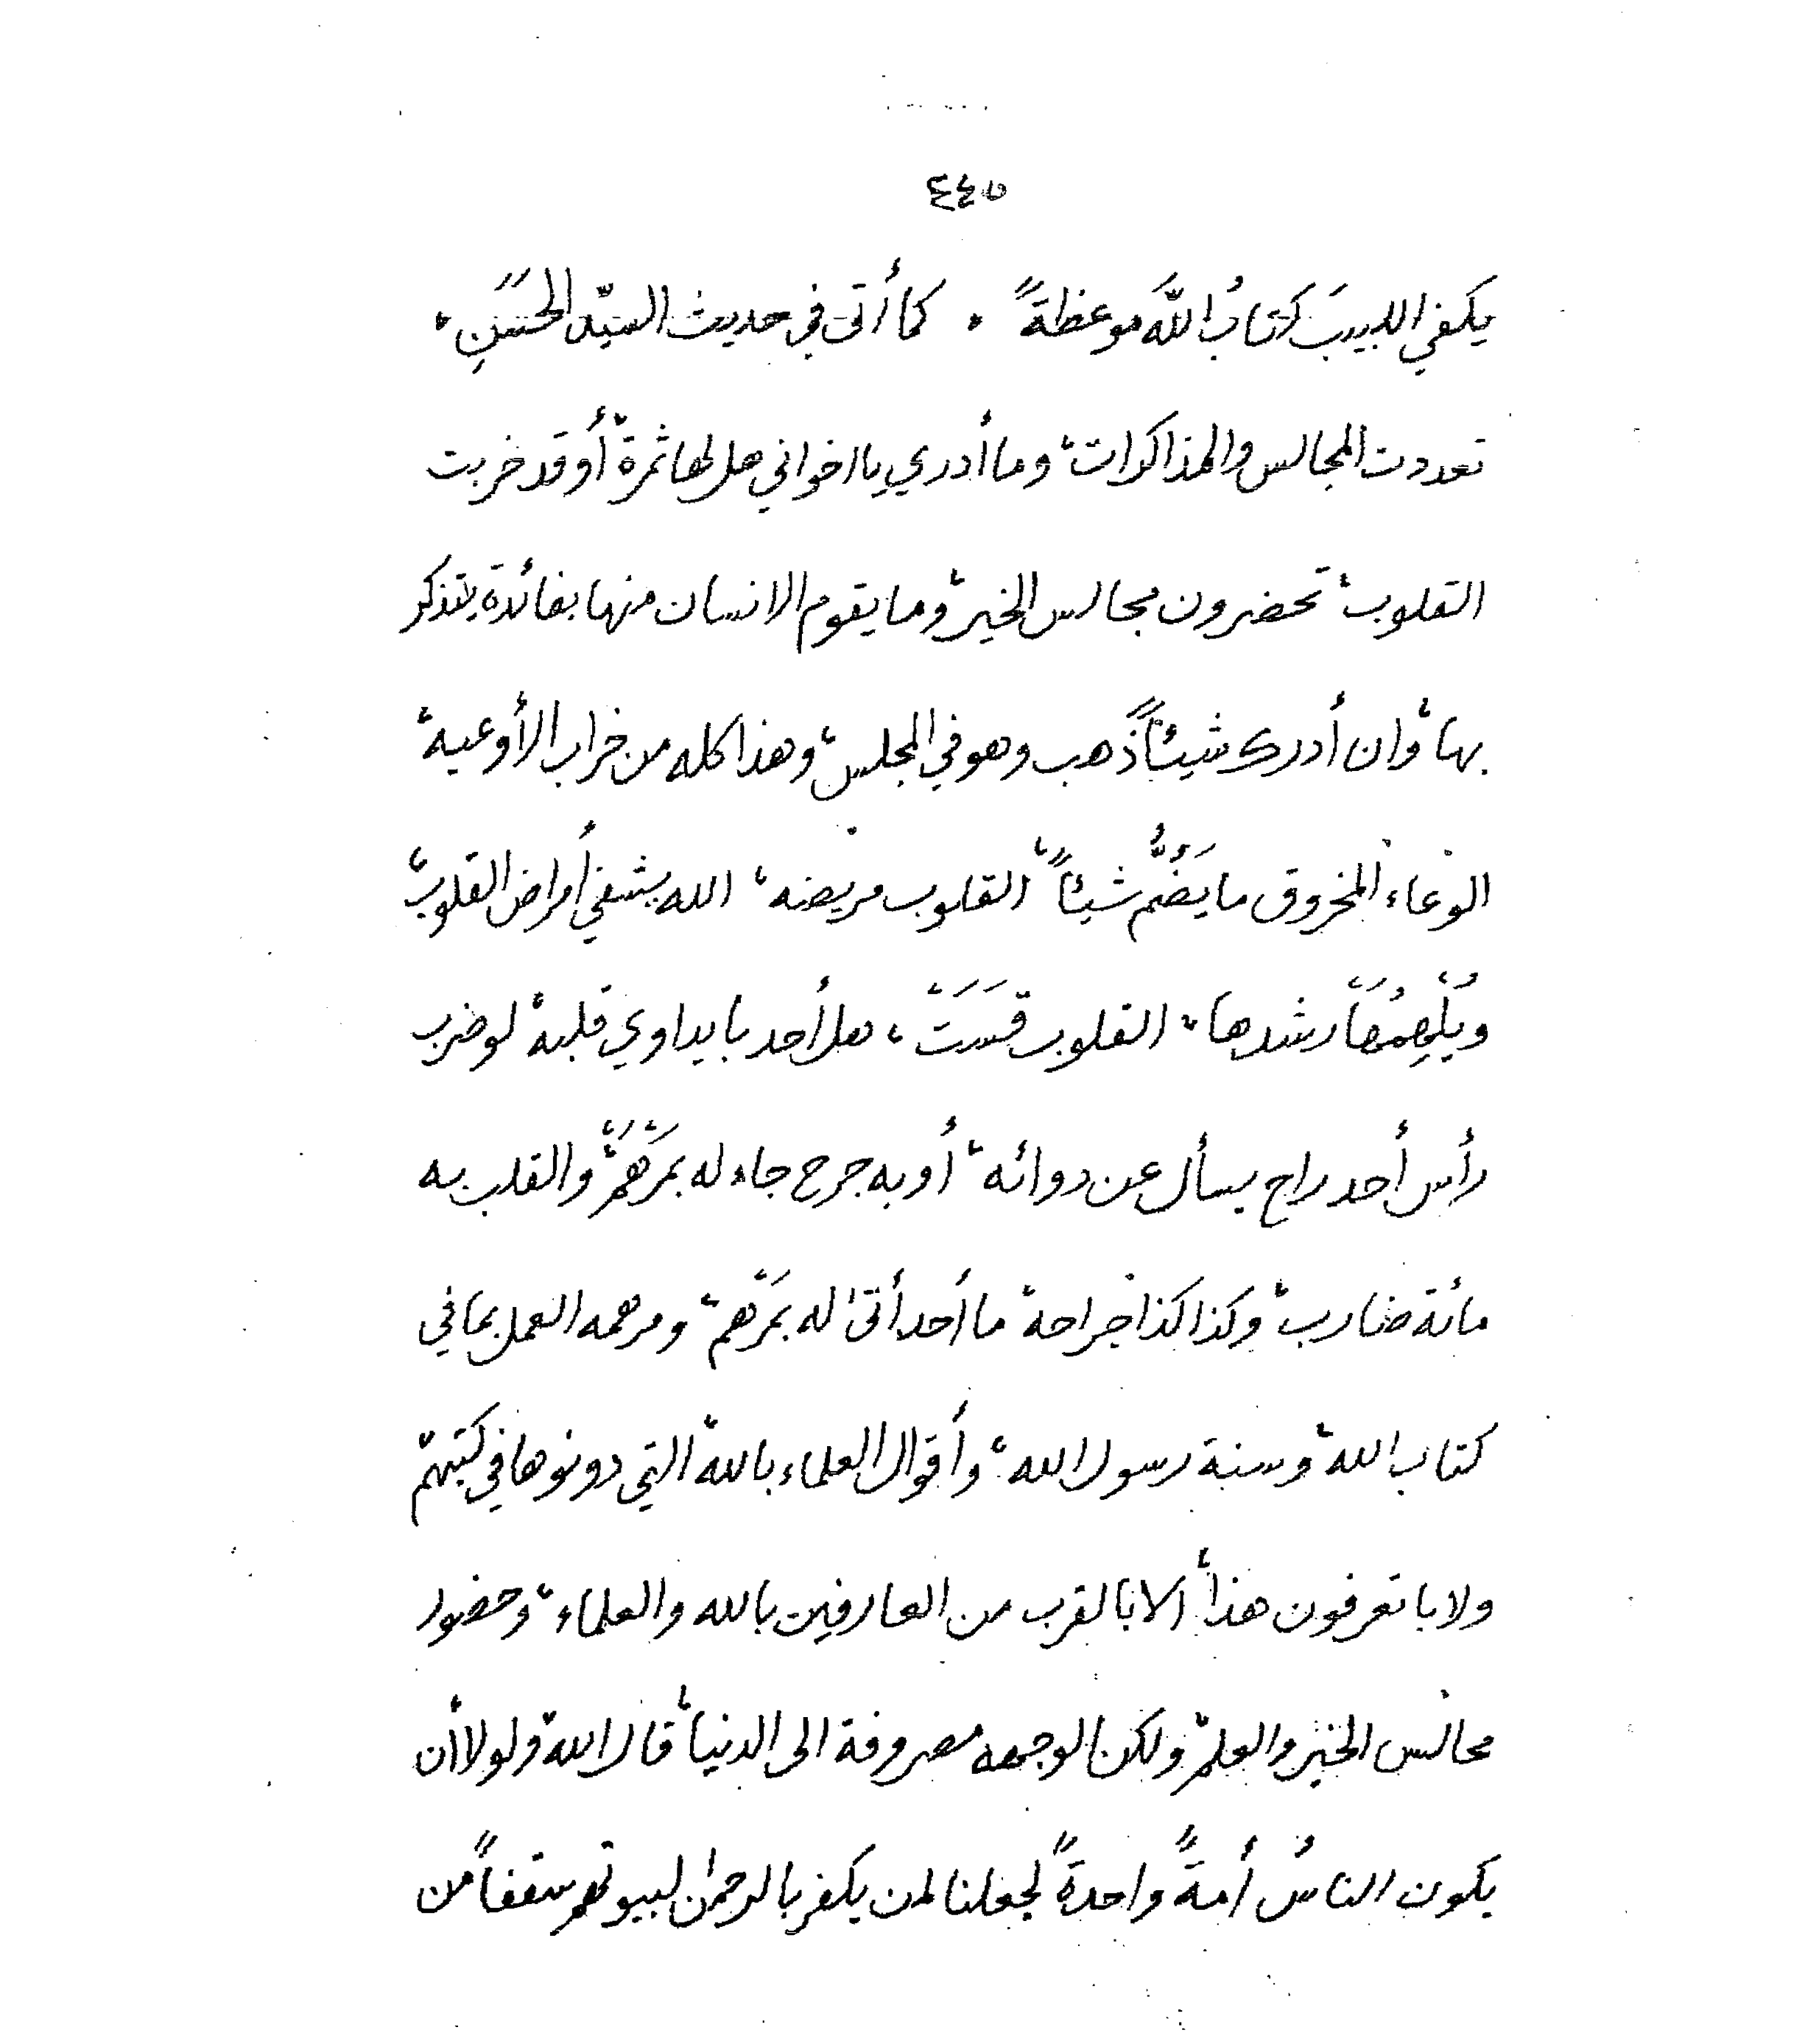 ٤٤٥
يكفي اللبيبَ كتابُ اللَّه موعظةً ، كما أتى في حديث السيّد الحَسَنِ ،
تعددت المجالس والمذاكرات، وما أدري يا اخواني هل لها ثمرة، أو قد خربت
القلوب، تحضرون مجالس الخير، وما يقوم الانسان منها بفائدة يتذكر
بها، وان أدرك شيئاً ذهب وهو في المجلس، وهذا كله من خراب الأوعيه،
الوعاء المخروق ما يَضُمُّ شيئاً، القلوب مريضه، الله يشفي أمراض القلوب،
ويُلْهِمُهَا رشدها، القلوب قسَسَتْ، هل أحد بايداوي قلبه، لو ضرب
رأس أحد راح يسأل عن دوائه، أو به جرح جاء له بمَرْهَمْ، والقلب به
مائة ضارب، وكذا كذا جراحة، ما أحد أتى له بمَرْهم، ومرهمه العمل بما في
كتاب الله، وسنة رسول الله، وأقوال العلماء بالله، التي دونوها في كتبهم،
ولا با تعرفون هذا، الا بالقرب من العارفين بالله والعلماء، وحضور
مجالس الخير والعلم، ولكن الوجهه مصروفة الى الدنيا، قال الله، ولولا أن
يكون الناسُ أمةً واحدةً لجعلنا لمن يكفر بالرحمٰن لبيوتهم سقفاً من